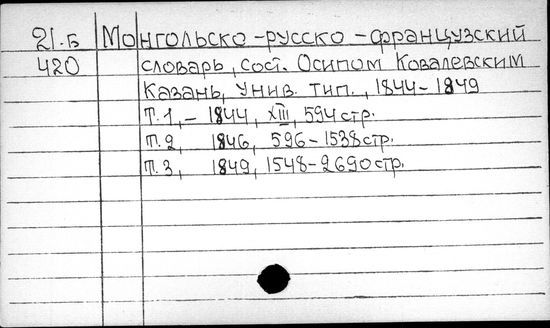 21.Б Монгольско-русско-французский
420 словарь, сост. Осипом Ковалевским
Казань, Унив. тип., 1844-1849
Т.1,- 1844, XIII, 594 стр.
Т.2, 1846, 596-1538 стр.
Т.3, 1849, 1548-2690 стр.